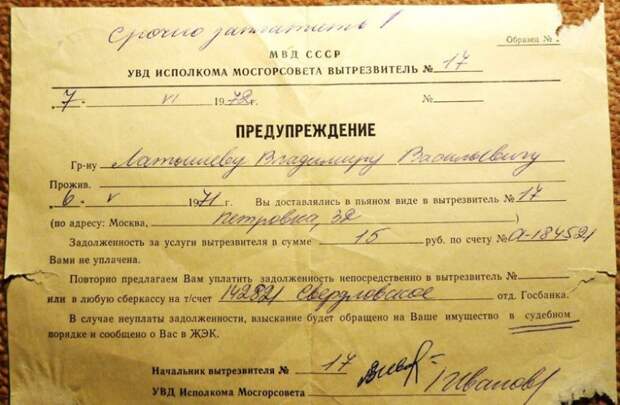 Срочно заплатить!
Образец №
МВД СССР
УВД ИСПОЛКОМА МОСГОРСОВЕТА ВЫТРЕЗВИТЕЛЬ № 17
7. VI 1972 г. №
ПРЕДУПРЕЖДЕНИЕ
Гр-ну Латышеву Владимиру Васильевичу
Прожив.
6. V 1971 г. Вы доставлялись в пьяном виде в вытрезвитель № 17
(по адресу: Москва, Петровка, 32)
Задолженность за услуги вытрезвителя в сумме 15 руб. по счету № А-184521
Вами не уплачена.
Повторно предлагаем Вам уплатить задолженность непосредственно в вытрезвитель №
или в любую сберкассу на т/счет 142821 Свердловское отд. Госбанка.
В случае неуплаты задолженности, взыскание будет обращено на Ваше имущество в судебном
порядке и сообщено о Вас в ЖЭК.
Начальник вытрезвителя № 17
УВД Исполкома Мосгорсовета Иванов